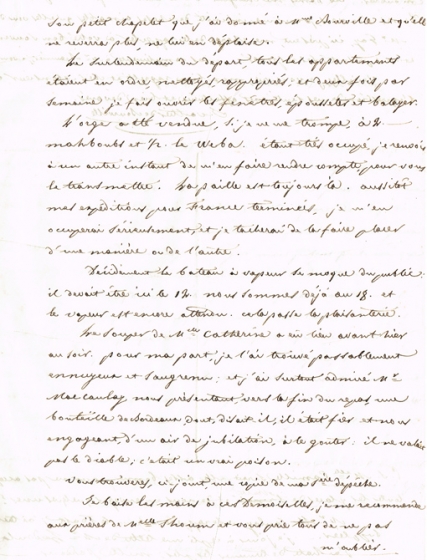 son petit chapelet que j'ai donné à Mme Sourville et qu'elle
ne reverra plus, ne lui en déplaise.
Le surlendemain du départ, tous les appartements
étaient en ordre, nettoyés, appropriés; et deux fois par
semaine je fais ouvrir les fenêtres, épousseter et balayer.
L'orge a été vendue, si je ne me trompe, à 2
mahboubs et ½ le Weba. étant très occupé, je renvois
à un autre instant de m'en faire rendre compte, pour vous
le transmettre. La paille est toujours là. aussitôt
mes expéditions pour France terminées, je m'en
occuperai sérieusement, et je tâcherai de la faire placer
d'une manière ou de l'autre.
Décidément le bateau à vapeur se moque du public:
il devait être ici le 12. nous sommes déjà au 18. et
le vapeur est encore attendu. cela passe la plaisanterie.
Le souper de Melle Catherine a eu lieu avant hier
au soir. pour ma part, je l'ai trouvé passablement
ennuyeux et saugrenu; et j'ai surtout admiré Mr
Mac caulay nous présentant, vers la fin du repas une
bouteille de Bordeaux, dont, disait il, il était fier et nous
engageant, d'un air de jubilation, à le goûter: il ne valait
pas le diable; c'était un vrai poison.
Vous trouverez, ci-joint, une copie de ma 1re dépêche.
Je baise les mains à ces Demoiselles, je me recommande
aux prières de Melle et vous prie tous de ne pas
m'oublier.